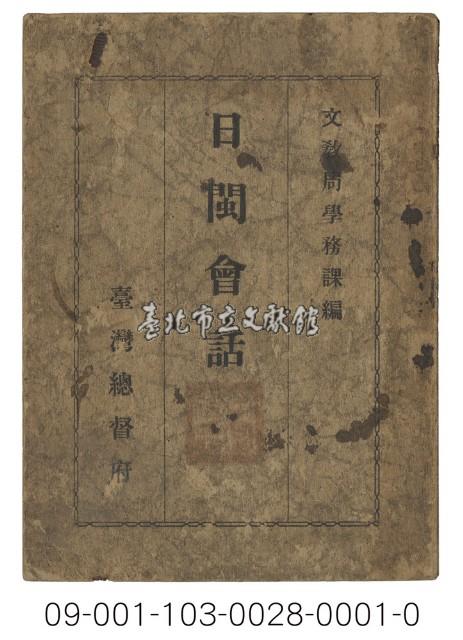 文教局學務課編
日閩會話
臺灣總督府
臺北市立文獻館
09-001-103-0028-0001-0